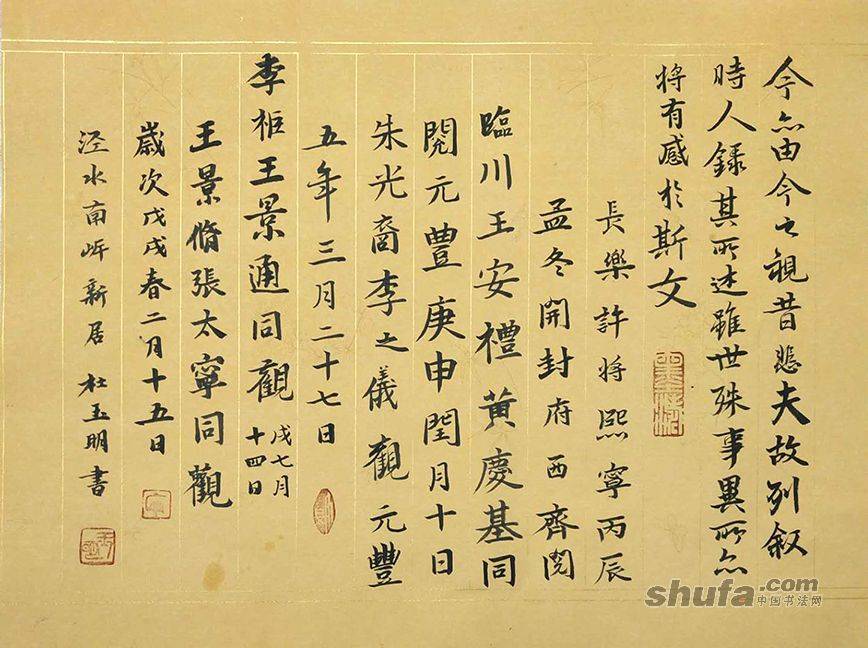 今亦由今之視昔悲夫故列叙
時人錄其所述雖世殊事異所亦
將有感於斯文
長樂許將熙寧丙辰
孟冬開封府西齊閱
臨川王安禮黃慶基同
閱元豐庚申閏月十日
朱光裔李之儀觀元豐
五年三月二十七日
李柜王景通同觀
戊七月
十四日
王景脩張太寧同觀
歲次戊戌春二月十五日
涇水南岍新居 杜玉明書
shufa.com
中国书法网